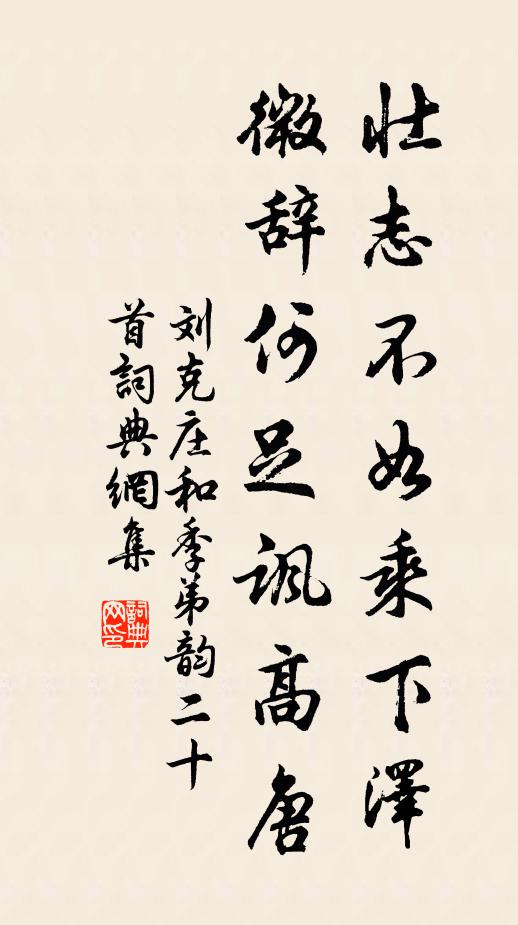 壮志不如乘下澤
微辞何足諷高唐
刘克庄和季弟韵二十
首詞典網集
詞典
网印